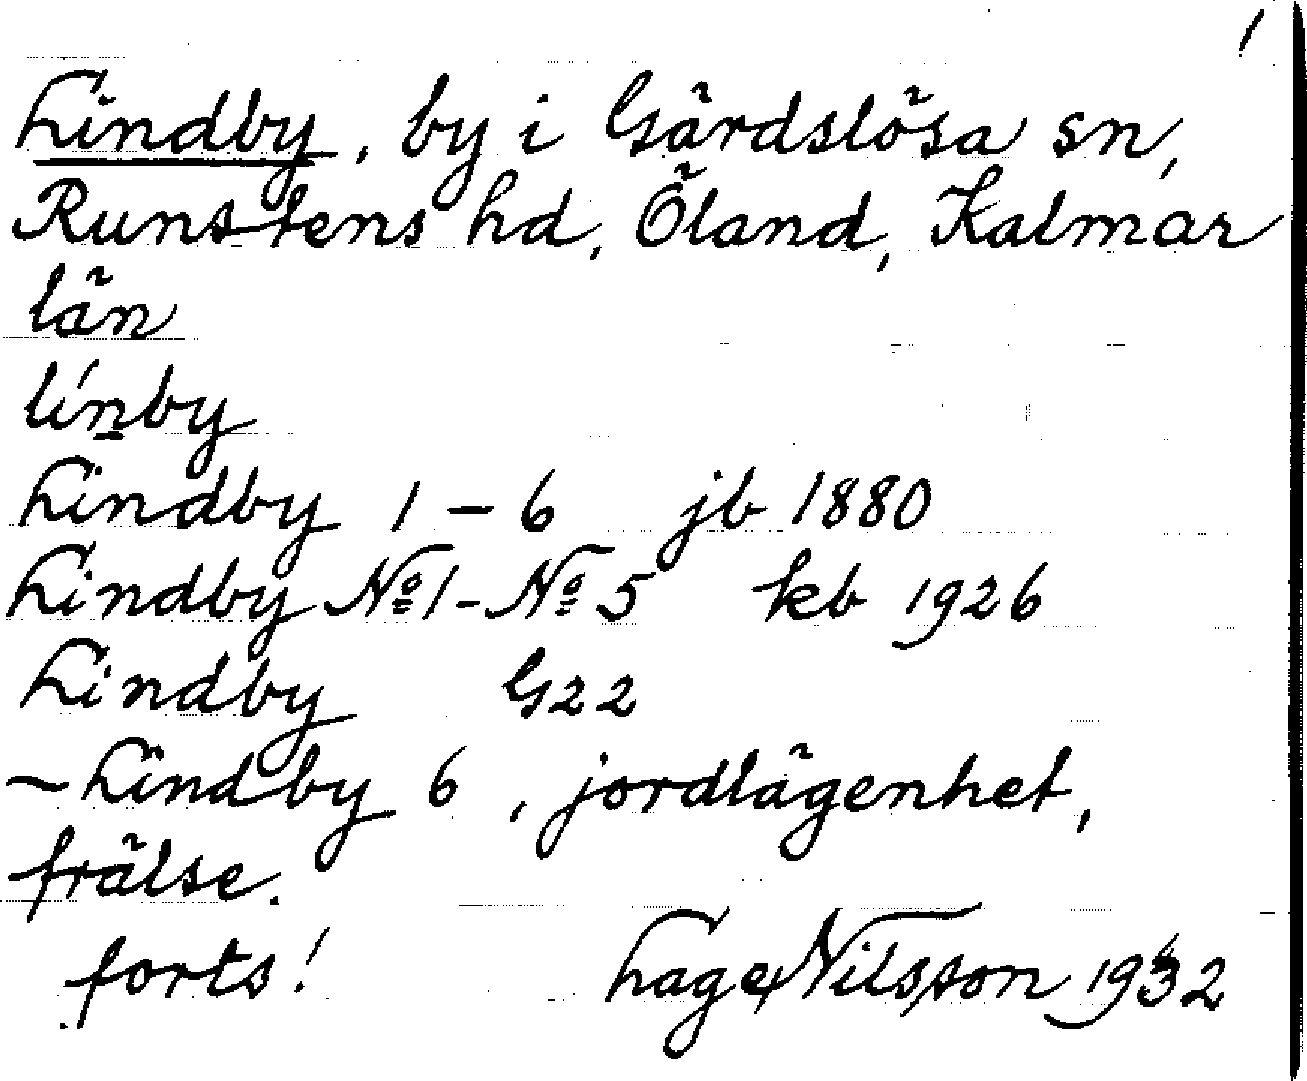 1
Lindby, by i Gärdslösa sn,
Runstens hd, Öland, Kalmar
län
línby
Lindby 1 – 6 jb 1880
Lindby No 1 - No 5 kb 1926
Lindby G22
– Lindby 6, jordlägenhet,
frälse.
forts! Hage Nilsson 1932